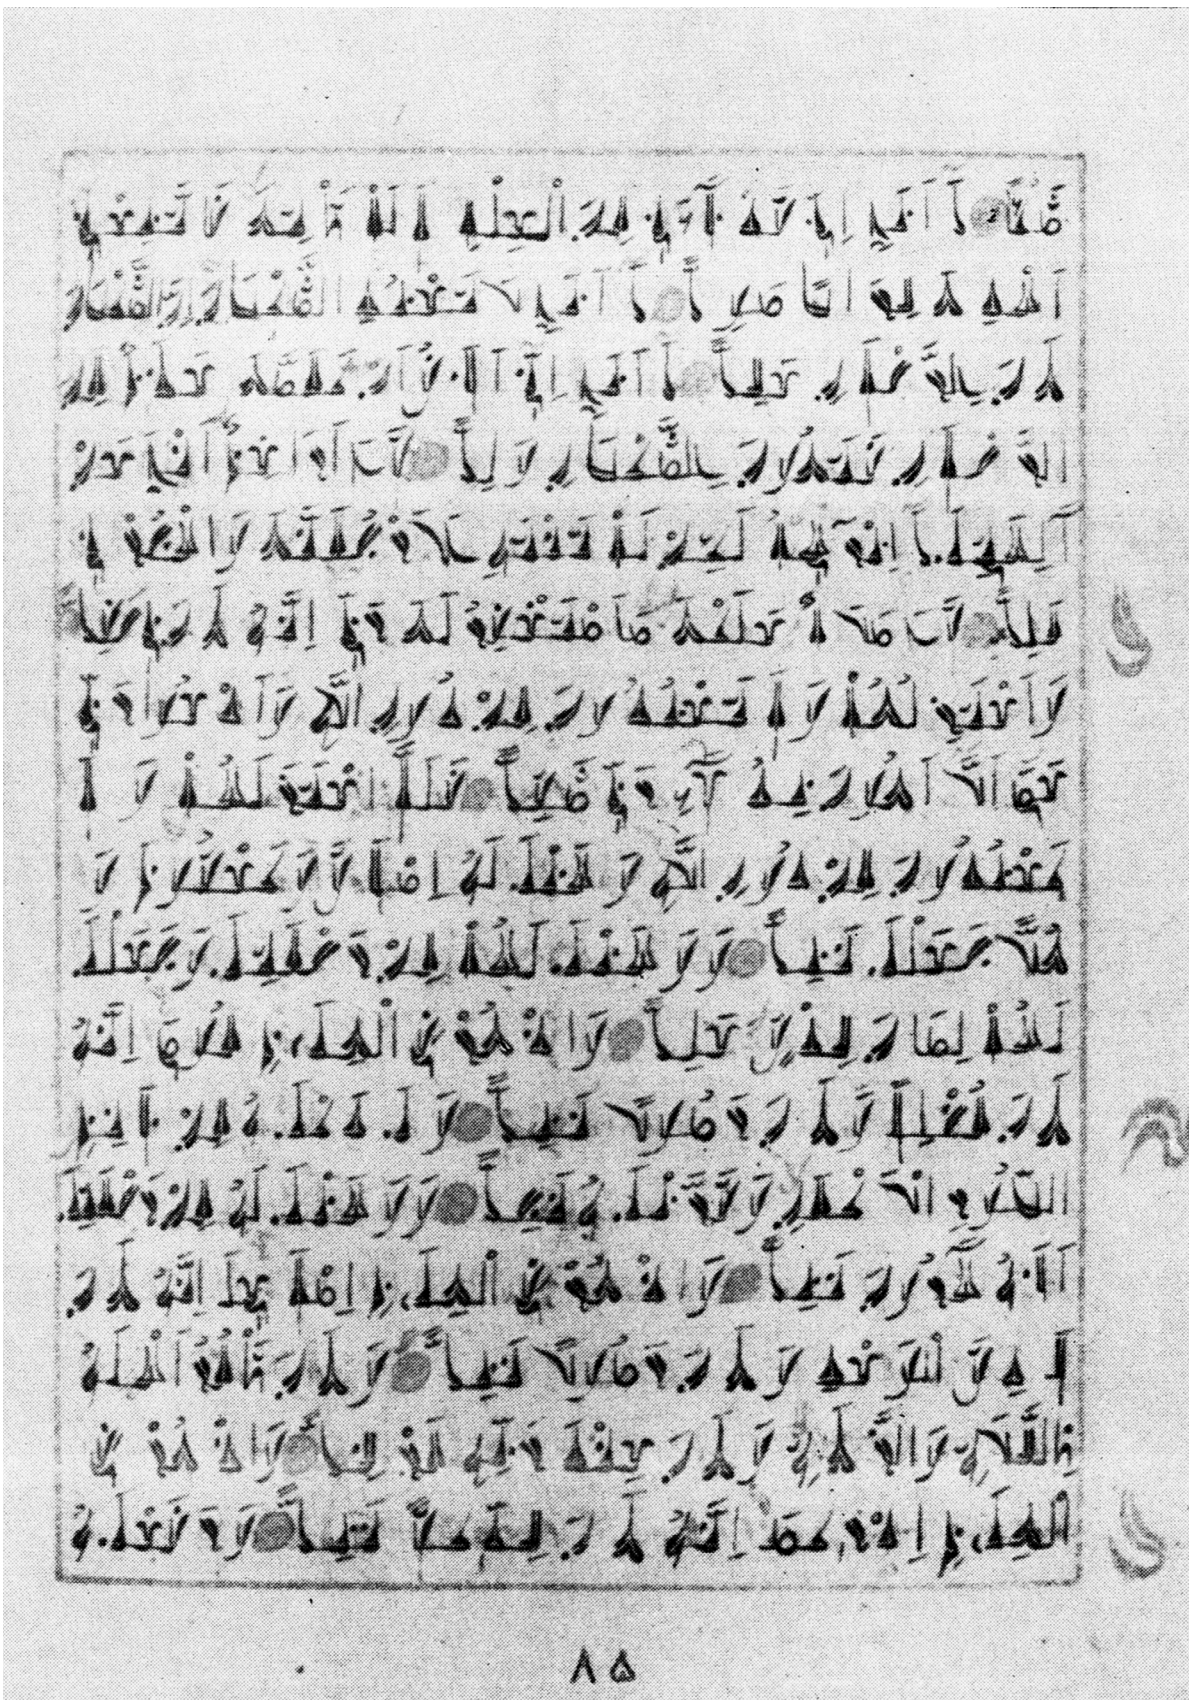 شَيْئًا يَا أَبَتِ إِنِّي قَدْ جَاءَنِي مِنَ الْعِلْمِ مَا لَمْ يَأْتِكَ فَاتَّبِعْنِي
أَهْدِكَ صِرَاطًا سَوِيًّا يَا أَبَتِ لَا تَعْبُدِ الشَّيْطَانَ إِنَّ الشَّيْطَانَ
كَانَ لِلرَّحْمَنِ عَصِيًّا يَا أَبَتِ إِنِّي أَخَافُ أَنْ يَمَسَّكَ عَذَابٌ مِنَ
الرَّحْمَنِ فَتَكُونَ لِلشَّيْطَانِ وَلِيًّا قَالَ أَرَاغِبٌ أَنْتَ عَنْ
آلِهَتِي يَا إِبْرَاهِيمُ لَئِنْ لَمْ تَنْتَهِ لَأَرْجُمَنَّكَ وَاهْجُرْنِي
مَلِيًّا قَالَ سَلَامٌ عَلَيْكَ سَأَسْتَغْفِرُ لَكَ رَبِّي إِنَّهُ كَانَ بِي حَفِيًّا
وَأَعْتَزِلُكُمْ وَمَا تَدْعُونَ مِنْ دُونِ اللَّهِ وَأَدْعُوا رَبِّي
عَسَى أَلَّا أَكُونَ بِدُعَاءِ رَبِّي شَقِيًّا فَلَمَّا اعْتَزَلَهُمْ وَمَا
يَعْبُدُونَ مِنْ دُونِ اللَّهِ وَهَبْنَا لَهُ إِسْحَاقَ وَيَعْقُوبَ وَ
كُلًّا جَعَلْنَا نَبِيًّا وَوَهَبْنَا لَهُمْ مِنْ رَحْمَتِنَا وَجَعَلْنَا
لَهُمْ لِسَانَ صِدْقٍ عَلِيًّا وَاذْكُرْ فِي الْكِتَابِ مُوسَى إِنَّهُ
كَانَ مُخْلَصًا وَكَانَ رَسُولًا نَبِيًّا وَنَادَيْنَاهُ مِنْ جَانِبِ
الطُّورِ الْأَيْمَنِ وَقَرَّبْنَاهُ نَجِيًّا وَوَهَبْنَا لَهُ مِنْ رَحْمَتِنَا
أَخَاهُ هَارُونَ نَبِيًّا وَاذْكُرْ فِي الْكِتَابِ إِسْمَاعِيلَ إِنَّهُ كَانَ
صَادِقَ الْوَعْدِ وَكَانَ رَسُولًا نَبِيًّا وَكَانَ يَأْمُرُ أَهْلَهُ
بِالصَّلَاةِ وَالزَّكَاةِ وَكَانَ عِنْدَ رَبِّهِ مَرْضِيًّا وَاذْكُرْ فِي
الْكِتَابِ إِدْرِيسَ إِنَّهُ كَانَ صِدِّيقًا نَبِيًّا وَرَفَعْنَاهُ
٨٥